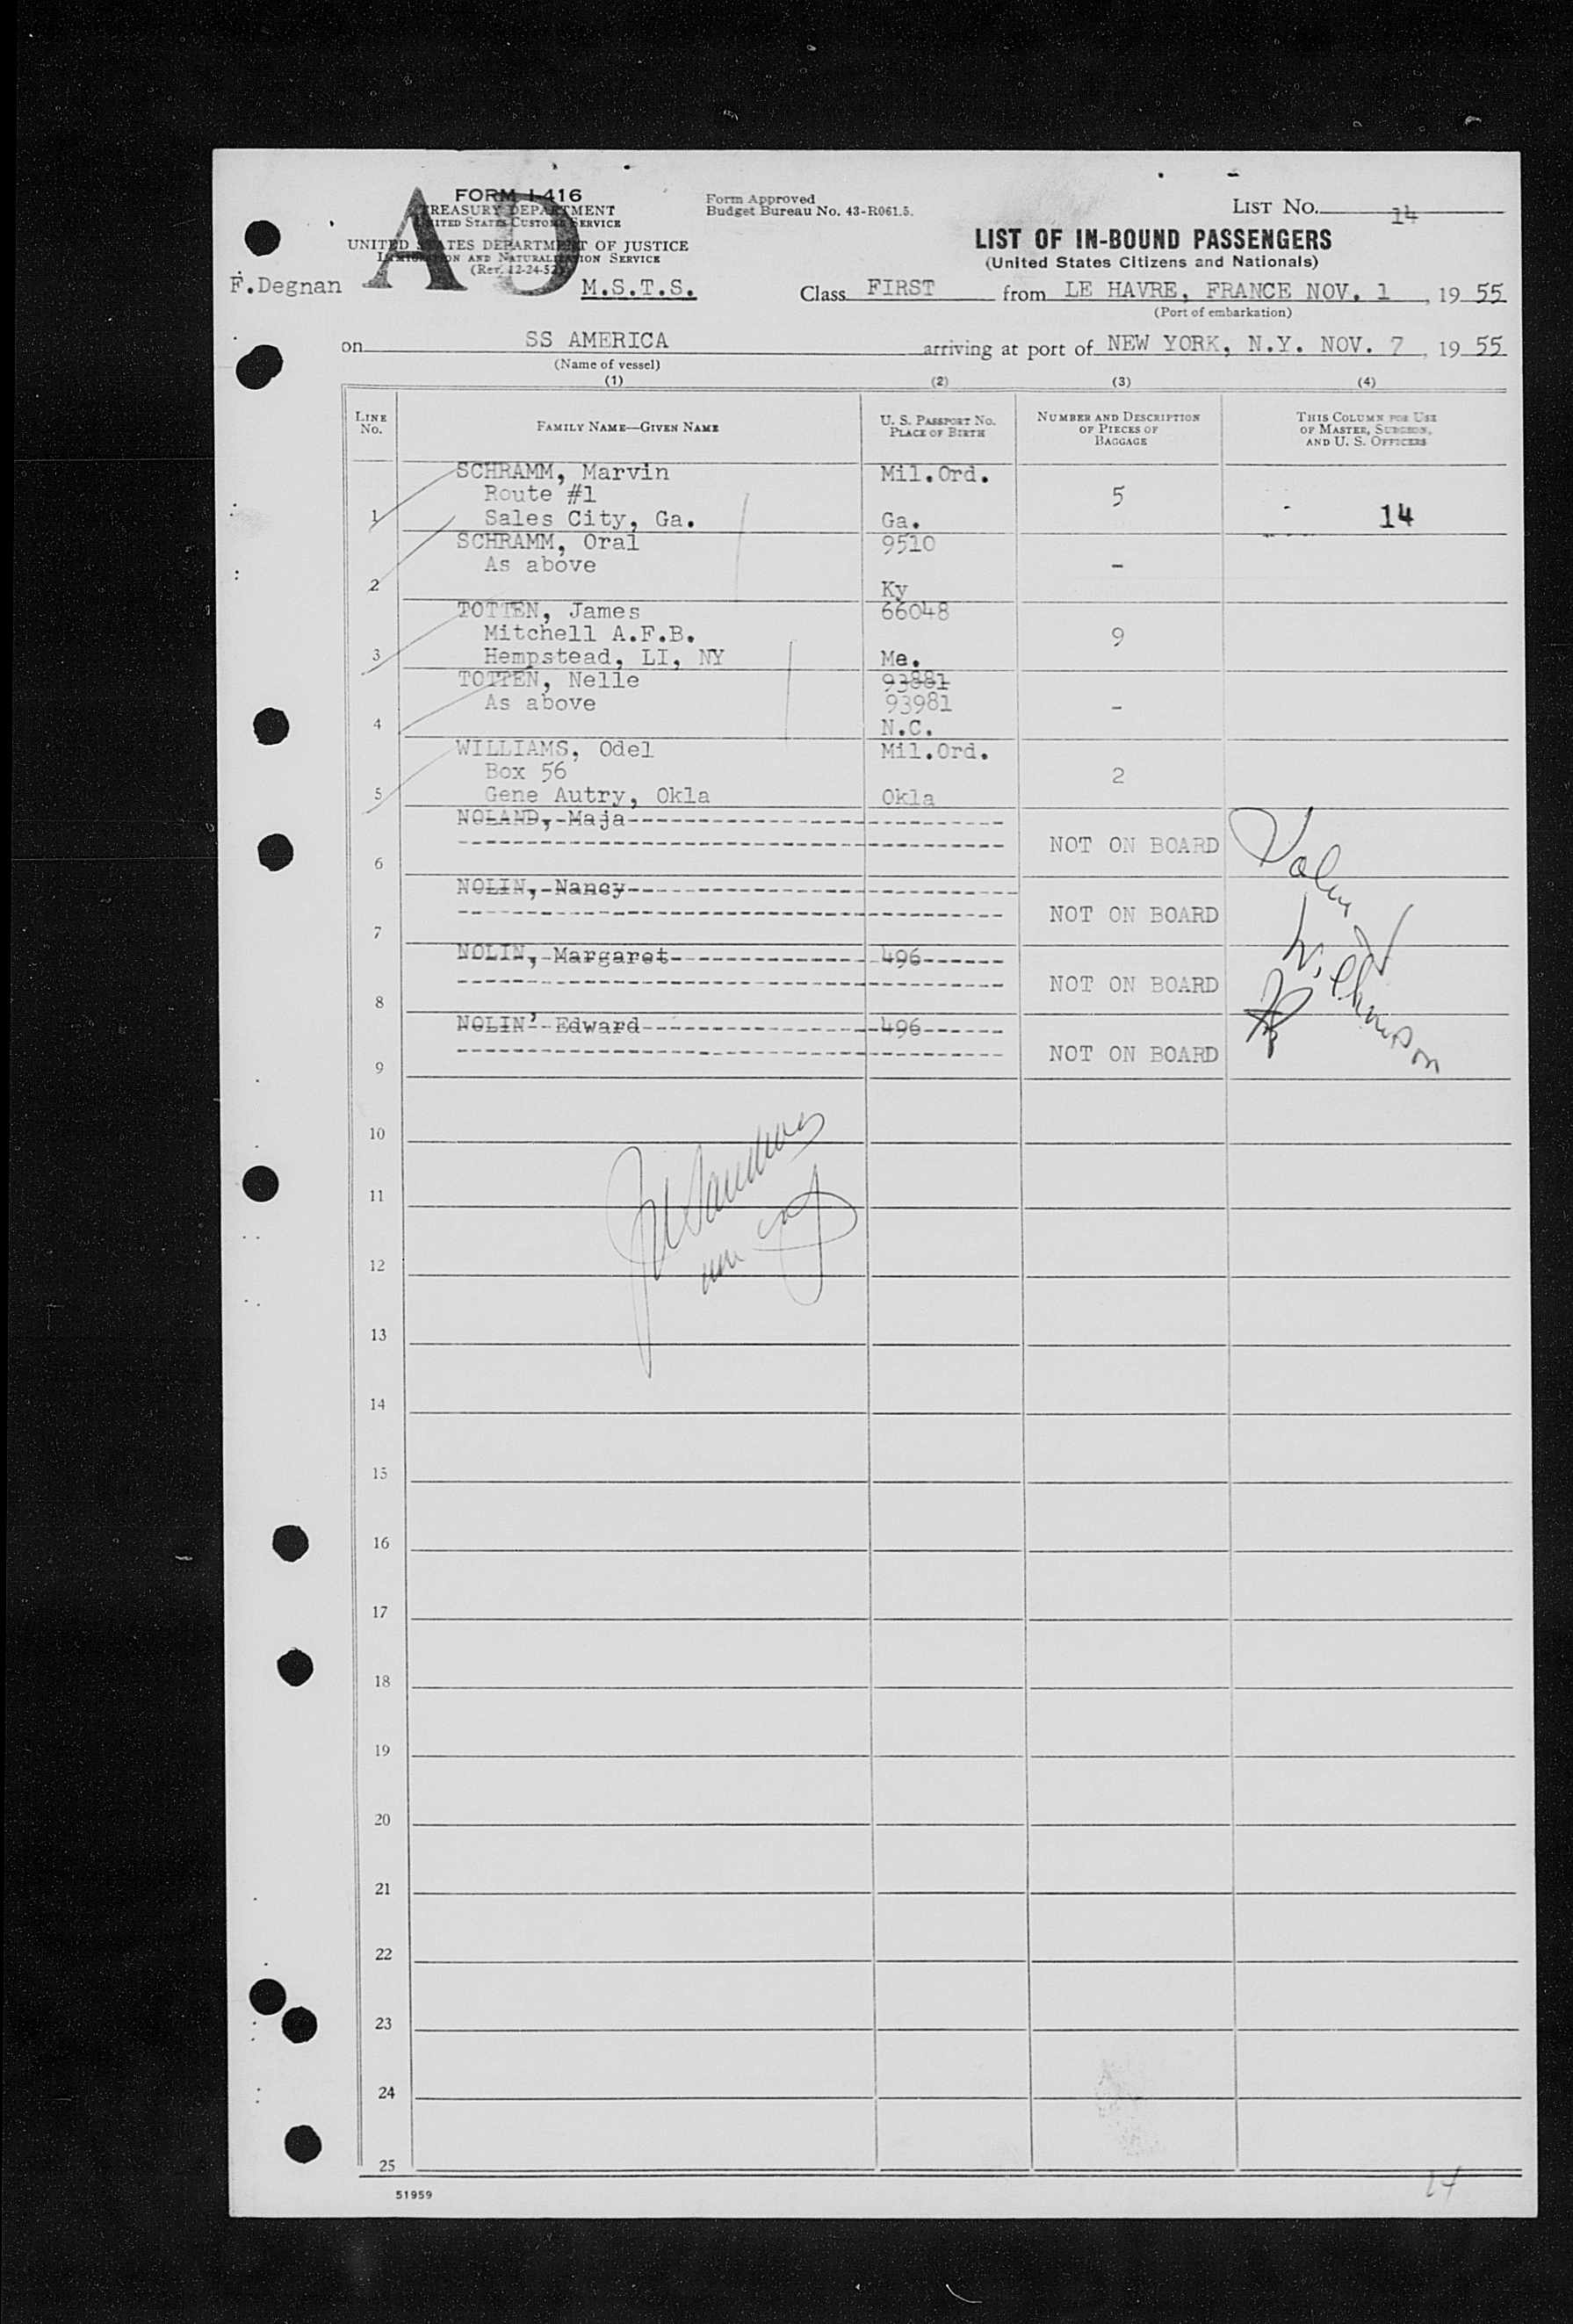 FORM I-416
TREASURY DEPARTMENT
UNITED STATES CUSTOMS SERVICE
UNITED STATES DEPARTMENT OF JUSTICE
IMMIGRATION AND NATURALIZATION SERVICE
(Rev. 12-24-52)
AD
Form Approved
Budget Bureau No. 43-R061.5.
LIST No. 14
LIST OF IN-BOUND PASSENGERS
(United States Citizens and Nationals)
F.Degnan
M.S.T.S.
Class FIRST from LE HAVRE, FRANCE NOV. 1, 19 55
(Port of embarkation)
on SS AMERICA arriving at port of NEW YORK, N.Y. NOV. 7, 19 55
(Name of vessel)
(1) (2) (3) (4)
LINE No. FAMILY NAME—GIVEN NAME U. S. PASSPORT No. PLACE OF BIRTH NUMBER AND DESCRIPTION OF PIECES OF BAGGAGE THIS COLUMN FOR USE OF MASTER, SURGEON, AND U. S. OFFICERS
SCHRAMM, Marvin Mil.Ord.
Route #1 5
1 Sales City, Ga. Ga. 14
SCHRAMM, Oral 9510
As above -
2 Ky
TOTTEN, James 66048
Mitchell A.F.B. 9
3 Hempstead, LI, NY Me.
TOTTEN, Nelle 93881
As above 93981 -
4 N.C.
WILLIAMS, Odel Mil.Ord.
Box 56 2
5 Gene Autry, Okla Okla
NOLAND, Maja
6 NOT ON BOARD
NOLIN, Nancy
7 NOT ON BOARD
NOLIN, Margaret 496
8 NOT ON BOARD
NOLIN' Edward 496
9 NOT ON BOARD
10
11
12
13
14
15
16
17
18
19
20
21
22
23
24
25
51959
14